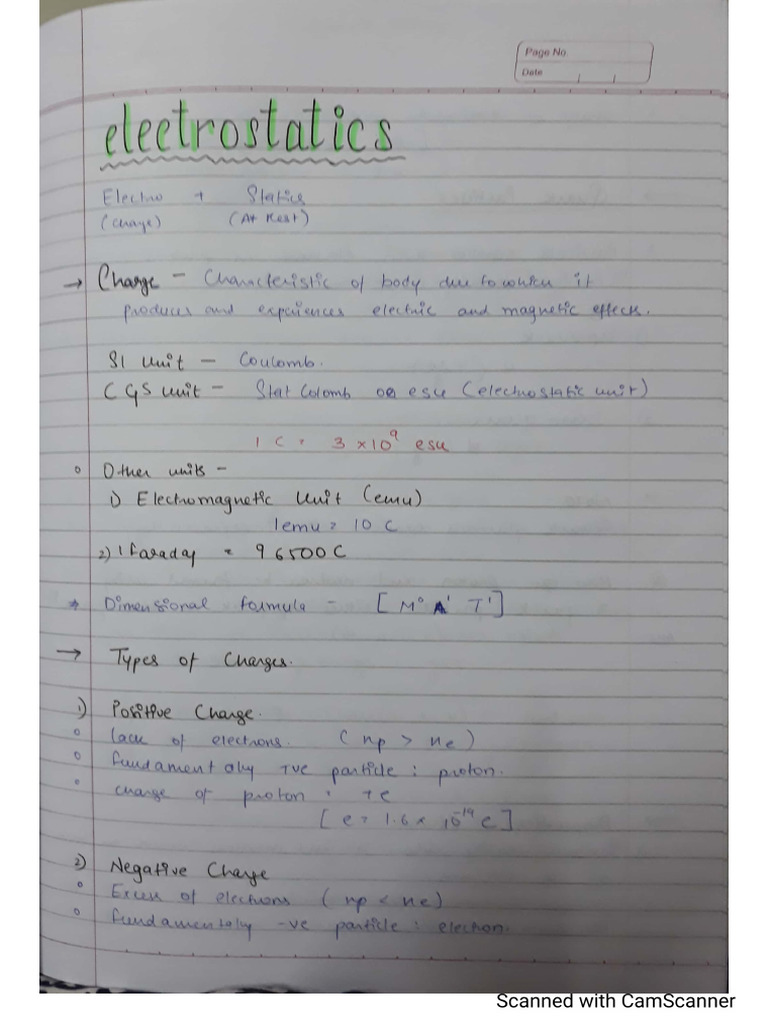 Page No.
Date
electrostatics
Electro + Statics
(Charge) (At Rest)
→ Charge - Characteristic of body due to which it
produces and experiences electric and magnetic effects.
SI Unit - Coulomb.
CGS unit - Stat Colomb OR esu (electrostatic unit)
1 C = 3 × 10⁹ esu
Other units -
1) Electromagnetic Unit (emu)
1emu = 10 C
2) 1 faraday = 96500 C
* Dimensional formula - [M⁰ A¹ T¹]
→ Types of Charges.
1) Positive Charge.
lack of electrons. (np > ne)
fundamentally +ve particle : proton.
charge of proton = +e
[e = 1.6 × 10⁻¹⁹ C]
2) Negative Charge
Excess of electrons (np < ne)
fundamentaly -ve particle : electron.
Scanned with CamScanner